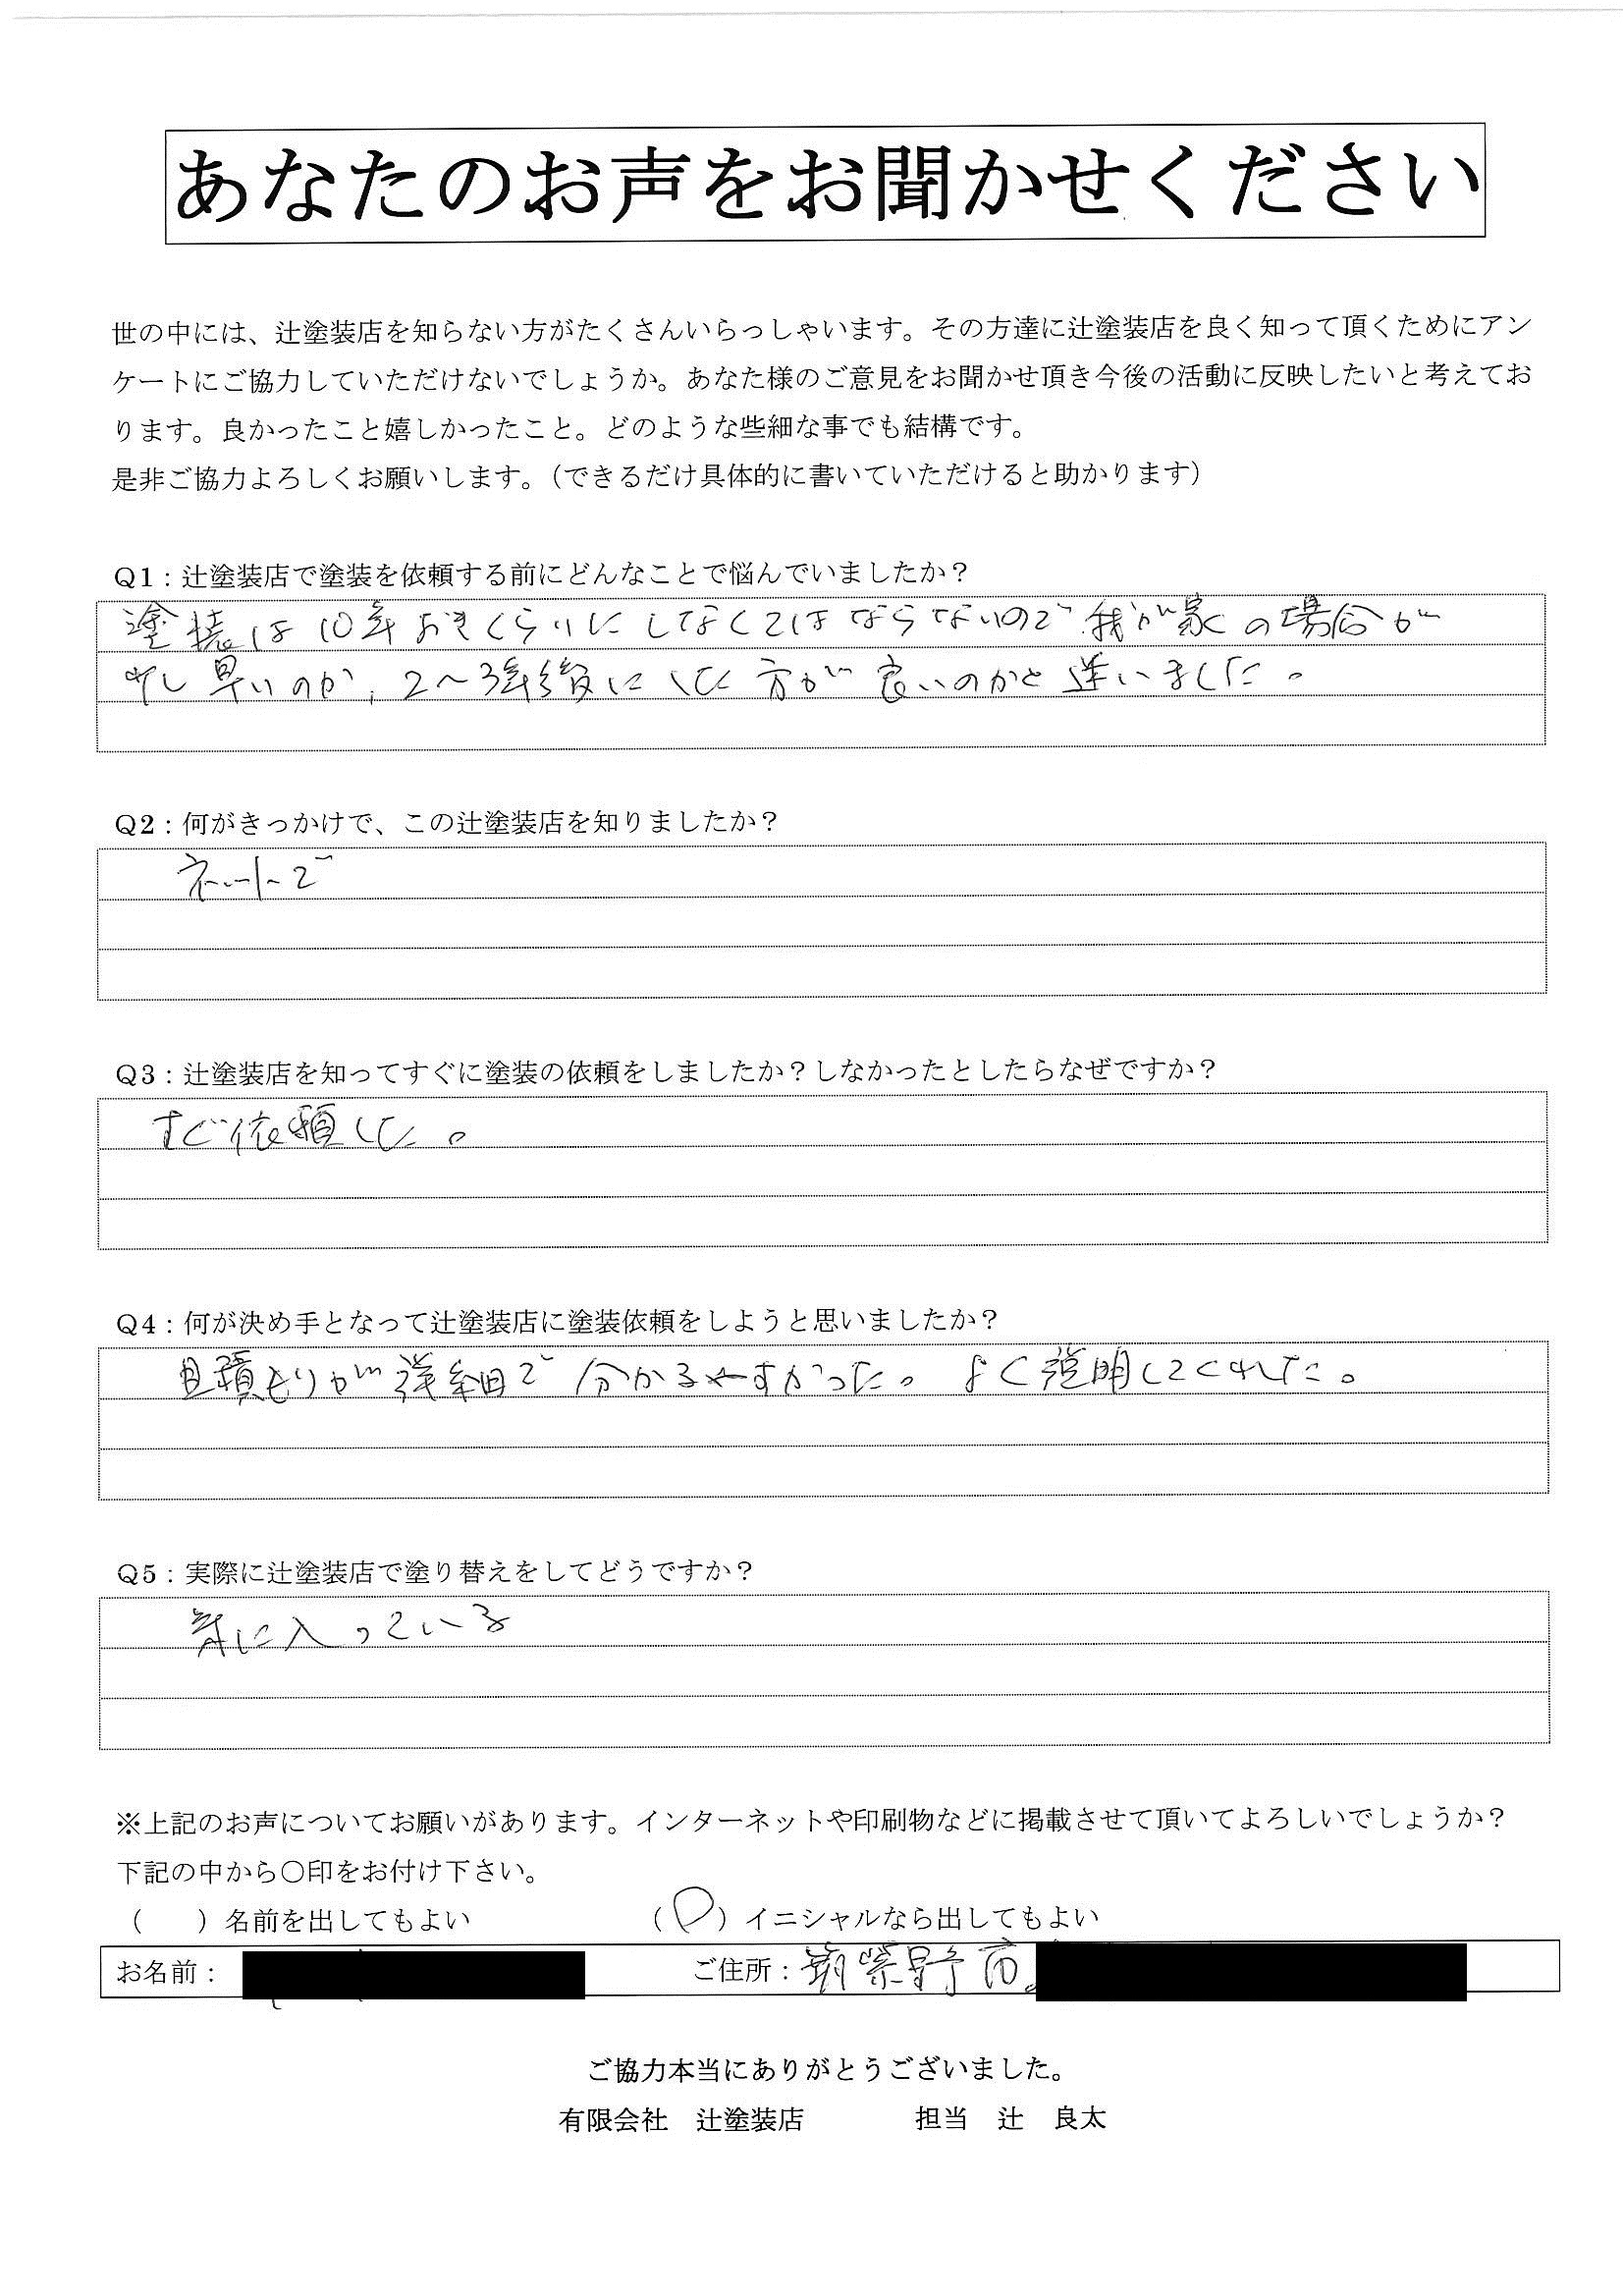 あなたのお声をお聞かせください
世の中には、辻塗装店を知らない方がたくさんいらっしゃいます。その方達に辻塗装店を良く知って頂くためにアン
ケートにご協力していただけないでしょうか。あなた様のご意見をお聞かせ頂き今後の活動に反映したいと考えてお
ります。良かったこと嬉しかったこと。どのような些細な事でも結構です。
是非ご協力よろしくお願いします。（できるだけ具体的に書いていただけると助かります）
Q1：辻塗装店で塗装を依頼する前にどんなことで悩んでいましたか？
塗装は10年おきくらいにしなくてはならないので我が家の場合が
少し早いのか、2～3年後にした方が良いのかと迷いました。
Q2：何がきっかけで、この辻塗装店を知りましたか？
ネットで
Q3：辻塗装店を知ってすぐに塗装の依頼をしましたか？しなかったとしたらなぜですか？
すぐ依頼した。
Q4：何が決め手となって辻塗装店に塗装依頼をしようと思いましたか？
見積もりが詳細で分かるやすかった。よく説明してくれた。
Q5：実際に辻塗装店で塗り替えをしてどうですか？
気に入っている
※上記のお声についてお願いがあります。インターネットや印刷物などに掲載させて頂いてよろしいでしょうか？
下記の中から〇印をお付け下さい。
（　　）名前を出してもよい　（〇）イニシャルなら出してもよい
お名前：　ご住所：筑紫野市
ご協力本当にありがとうございました。
有限会社　辻塗装店　担当　辻　良太